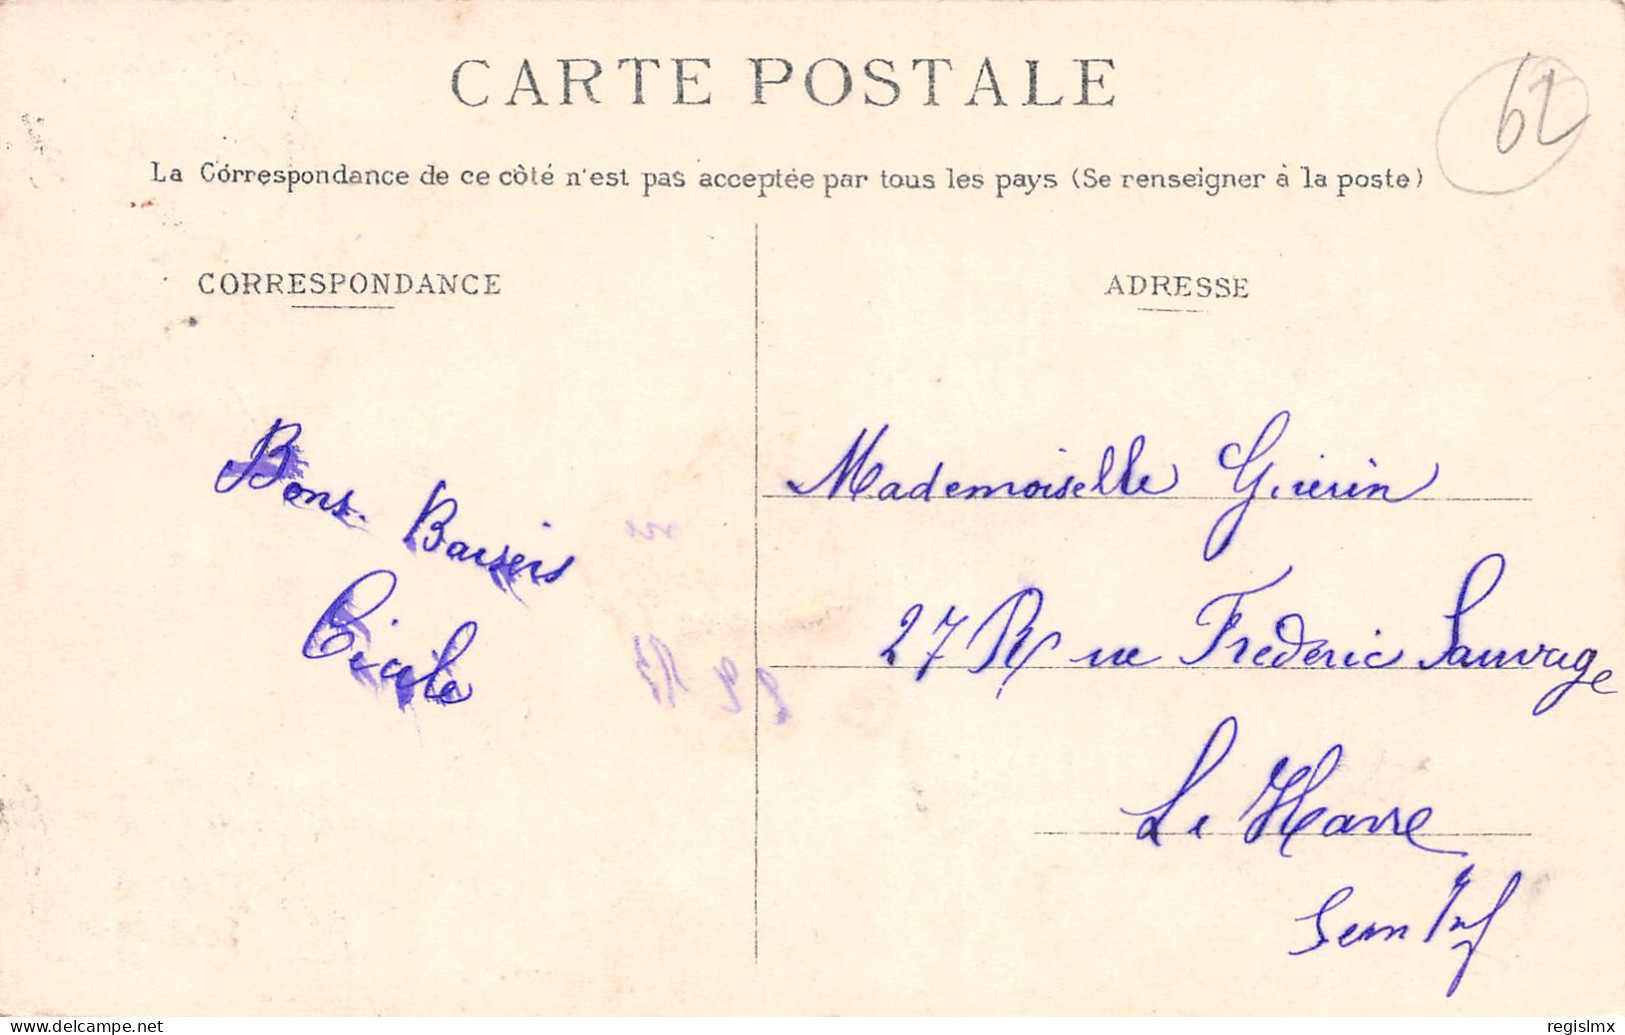 CARTE POSTALE
62
La Correspondance de ce côté n'est pas acceptée par tous les pays (Se renseigner à la poste)
CORRESPONDANCE
ADRESSE
Bons Baisers
Cécile
Mademoiselle Guérin
27 Rue Frédéric Sauvage
Le Havre
Sein Inf
www.delcampe.net
regislmx